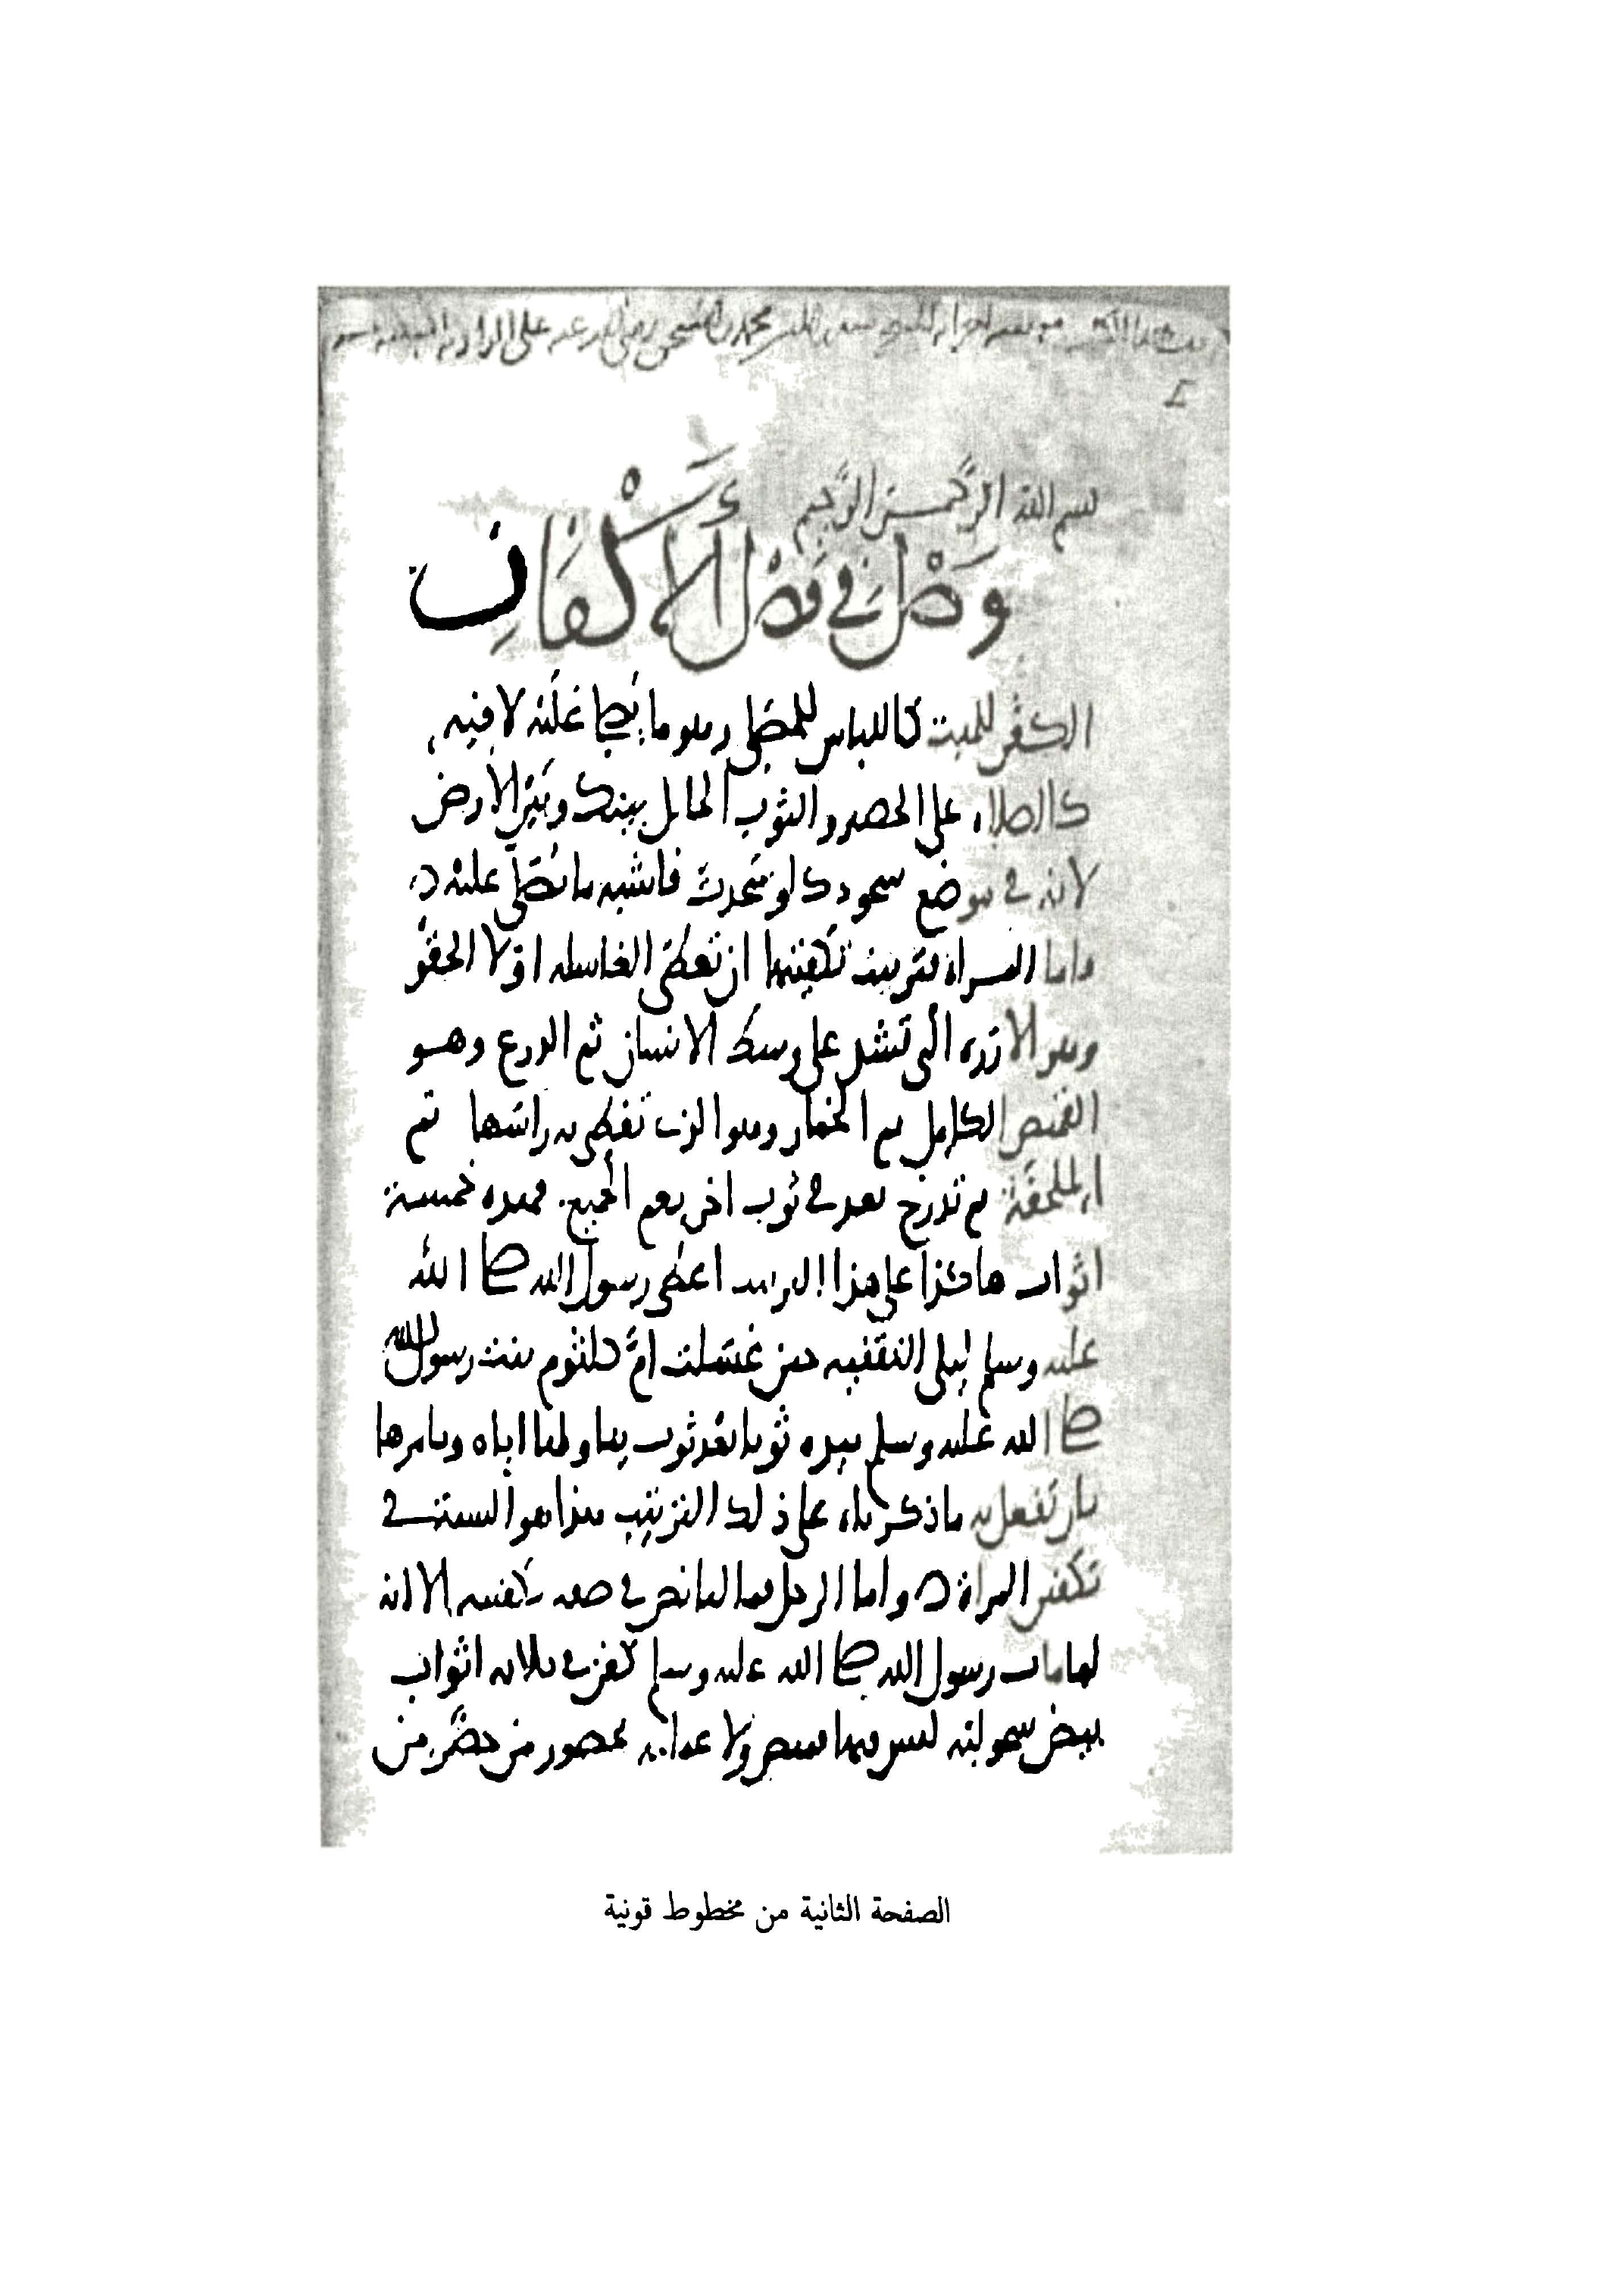 محمد
بسم الله الرحمن الرحيم
وصل في فصل الأكفان
الكفن للميت كاللباس للمصلي وهو ما يصلى عليه لا فيه
كالصلاه على الحصير والثوب الحائل بينك وبين الارض
لانه في موضع سجودك لو سجدت فاشبه ما يصلى عليه
واما المراه فترتيب تكفينها ان تعطى الغاسله اولا الحقو
وهو الازره التي تشد على وسط الانسان ثم الدرع وهو
القميص الكامل ثم الخمار وهو الذي تغطى به راسها ثم
الملحفة ثم تدرج بعد في ثوب اخر يعم الجميع فهذه خمسة
اثواب هاكذا على هذا اعطى رسول الله صلى الله
عليه وسلم ليلى الثقفيه حين غسلت ام كلثوم بنت رسول الله
صلى الله عليه وسلم بيده ثوبا بعد ثوب يناولها اياه ويامرها
بان تفعل به ما ذكرناه على ذلك الترتيب فهذا هو السنة في
تكفين المراة واما الرجل فما لنا نص في صفه تكفينه الا انه
لما مات رسول الله صلى الله عليه وسلم كفن في ثلاثه اثواب
بيض سحولية ليس فيها قميص ولا عمامه بحضور من حضر من
الصفحة الثانية من مخطوط قونية